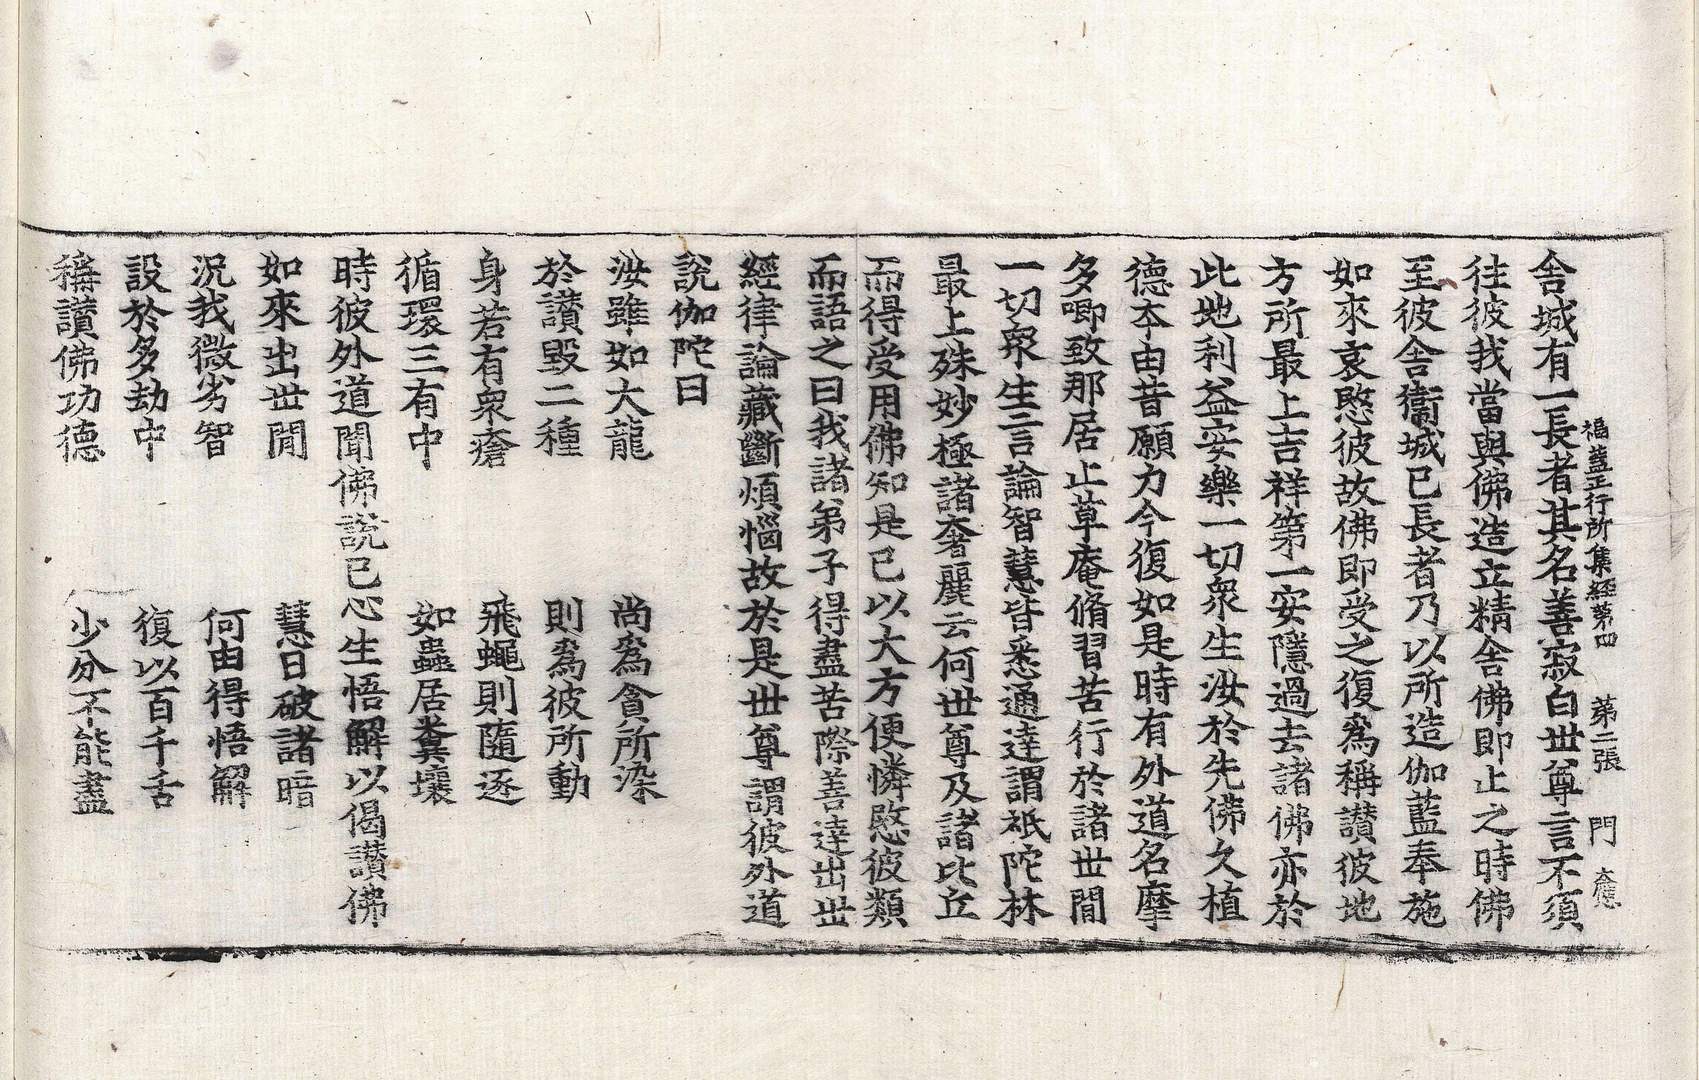 福蓋正行所集經第四 第二張 門
舍城有一長者其名善寂白世尊言不須
往彼我當與佛造立精舍佛即止之時佛
至彼舍衛城已長者乃以所造伽藍奉施
如來哀愍彼故佛即受之復爲稱讃彼地
方所最上吉祥第一安隱過去諸佛亦於
此地利益安樂一切衆生汝於先佛久植
德本由昔願力今復如是時有外道名摩
多唧致那居止草庵脩習苦行於諸世間
一切衆生言論智慧皆悉通達謂祇陀林
最上殊妙極諸奢麗云何世尊及諸比丘
而得受用佛知是已以大方便憐愍彼類
而語之曰我諸弟子得盡苦際善達出世
經律論藏斷煩惱故於是世尊謂彼外道
說伽陀曰
汝雖如大龍 尚爲貪所染
於讃毀二種 則爲彼所動
身若有衆瘡 飛蠅則隨逐
循環三有中 如蟲居糞壤
時彼外道聞佛說已心生悟解以偈讃佛
如來出世間 慧日破諸暗
況我微劣智 何由得悟解
設於多劫中 復以百千舌
稱讃佛功德 少分不能盡